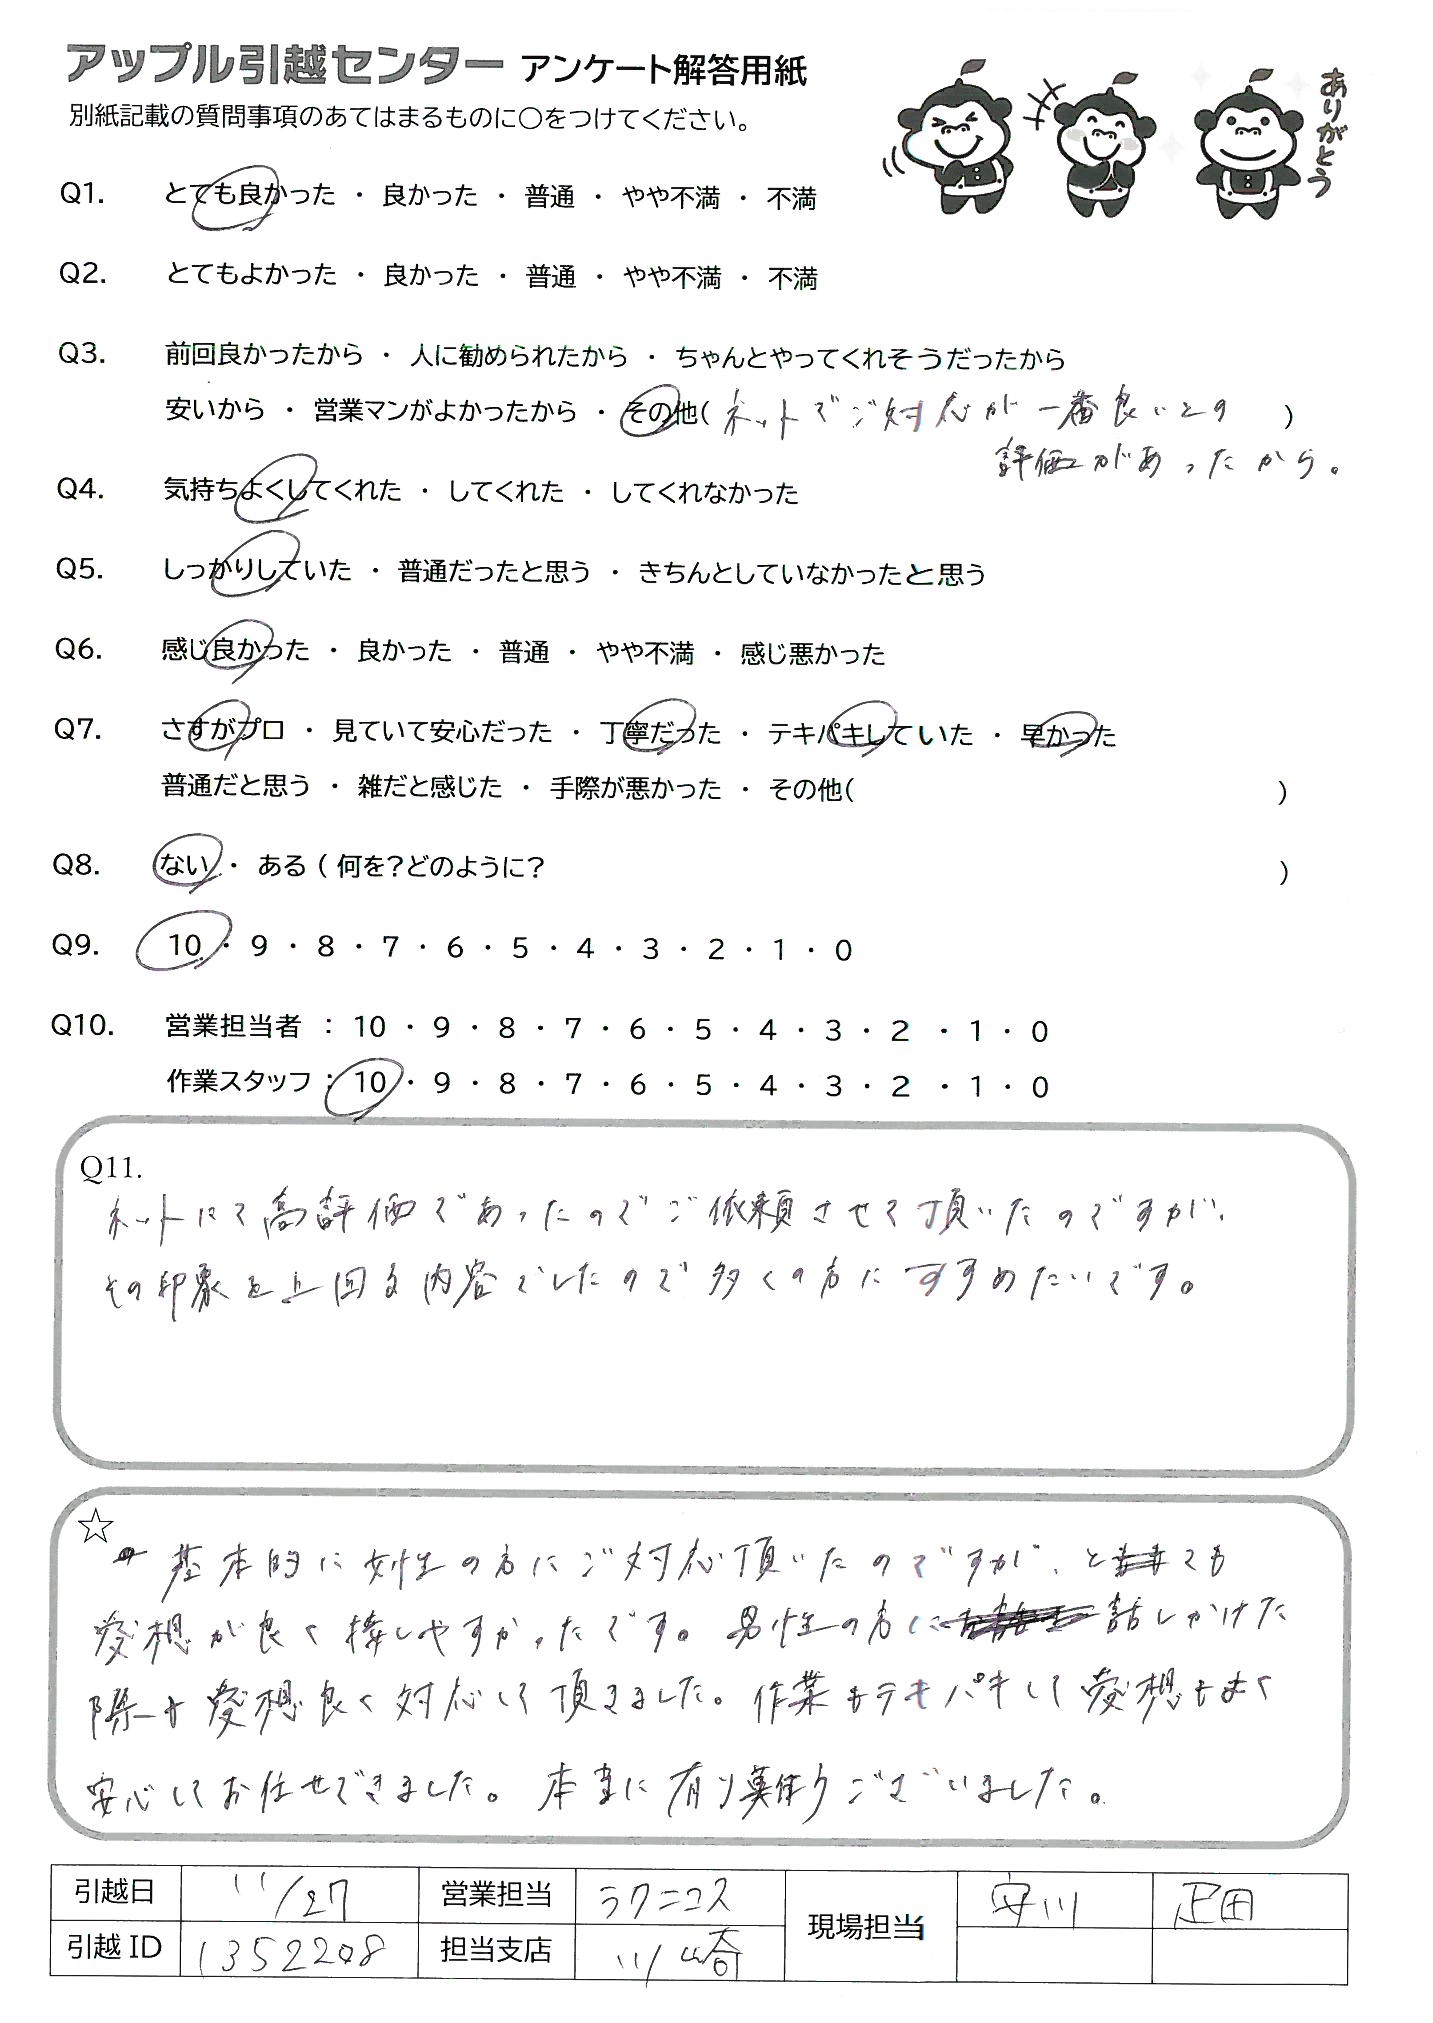 アップル引越センター アンケート解答用紙
別紙記載の質問事項のあてはまるものに〇をつけてください。
ありがとう
Q1. とても良かった ・ 良かった ・ 普通 ・ やや不満 ・ 不満
Q2. とてもよかった ・ 良かった ・ 普通 ・ やや不満 ・ 不満
Q3. 前回良かったから ・ 人に勧められたから ・ ちゃんとやってくれそうだったから
安いから ・ 営業マンがよかったから ・ その他( ネットでご対応が一番良いとの )
評価があったから。
Q4. 気持ちよくしてくれた ・ してくれた ・ してくれなかった
Q5. しっかりしていた ・ 普通だったと思う ・ きちんとしていなかったと思う
Q6. 感じ良かった ・ 良かった ・ 普通 ・ やや不満 ・ 感じ悪かった
Q7. さすがプロ ・ 見ていて安心だった ・ 丁寧だった ・ テキパキしていた ・ 早かった
普通だと思う ・ 雑だと感じた ・ 手際が悪かった ・ その他( )
Q8. ない ・ ある ( 何を?どのように? )
Q9. 10 ・ 9 ・ 8 ・ 7 ・ 6 ・ 5 ・ 4 ・ 3 ・ 2 ・ 1 ・ 0
Q10. 営業担当者 : 10 ・ 9 ・ 8 ・ 7 ・ 6 ・ 5 ・ 4 ・ 3 ・ 2 ・ 1 ・ 0
作業スタッフ : 10 ・ 9 ・ 8 ・ 7 ・ 6 ・ 5 ・ 4 ・ 3 ・ 2 ・ 1 ・ 0
Q11.
ネットにて高評価であったのでご依頼させて頂いたのですが、
その印象を上回る内容でしたので多くの方にすすめたいです。
☆
基本的に女性の方にご対応頂いたのですが、とても
愛想が良く接しやすかったです。男性の方に話しかけた
際も愛想良く対応して頂きました。作業もテキパキして愛想もよく
安心してお任せできました。本当に有り難うございました。
引越日 11/27 営業担当 ラクニコス 現場担当 安川 疋田
引越ID 1352208 担当支店 川崎